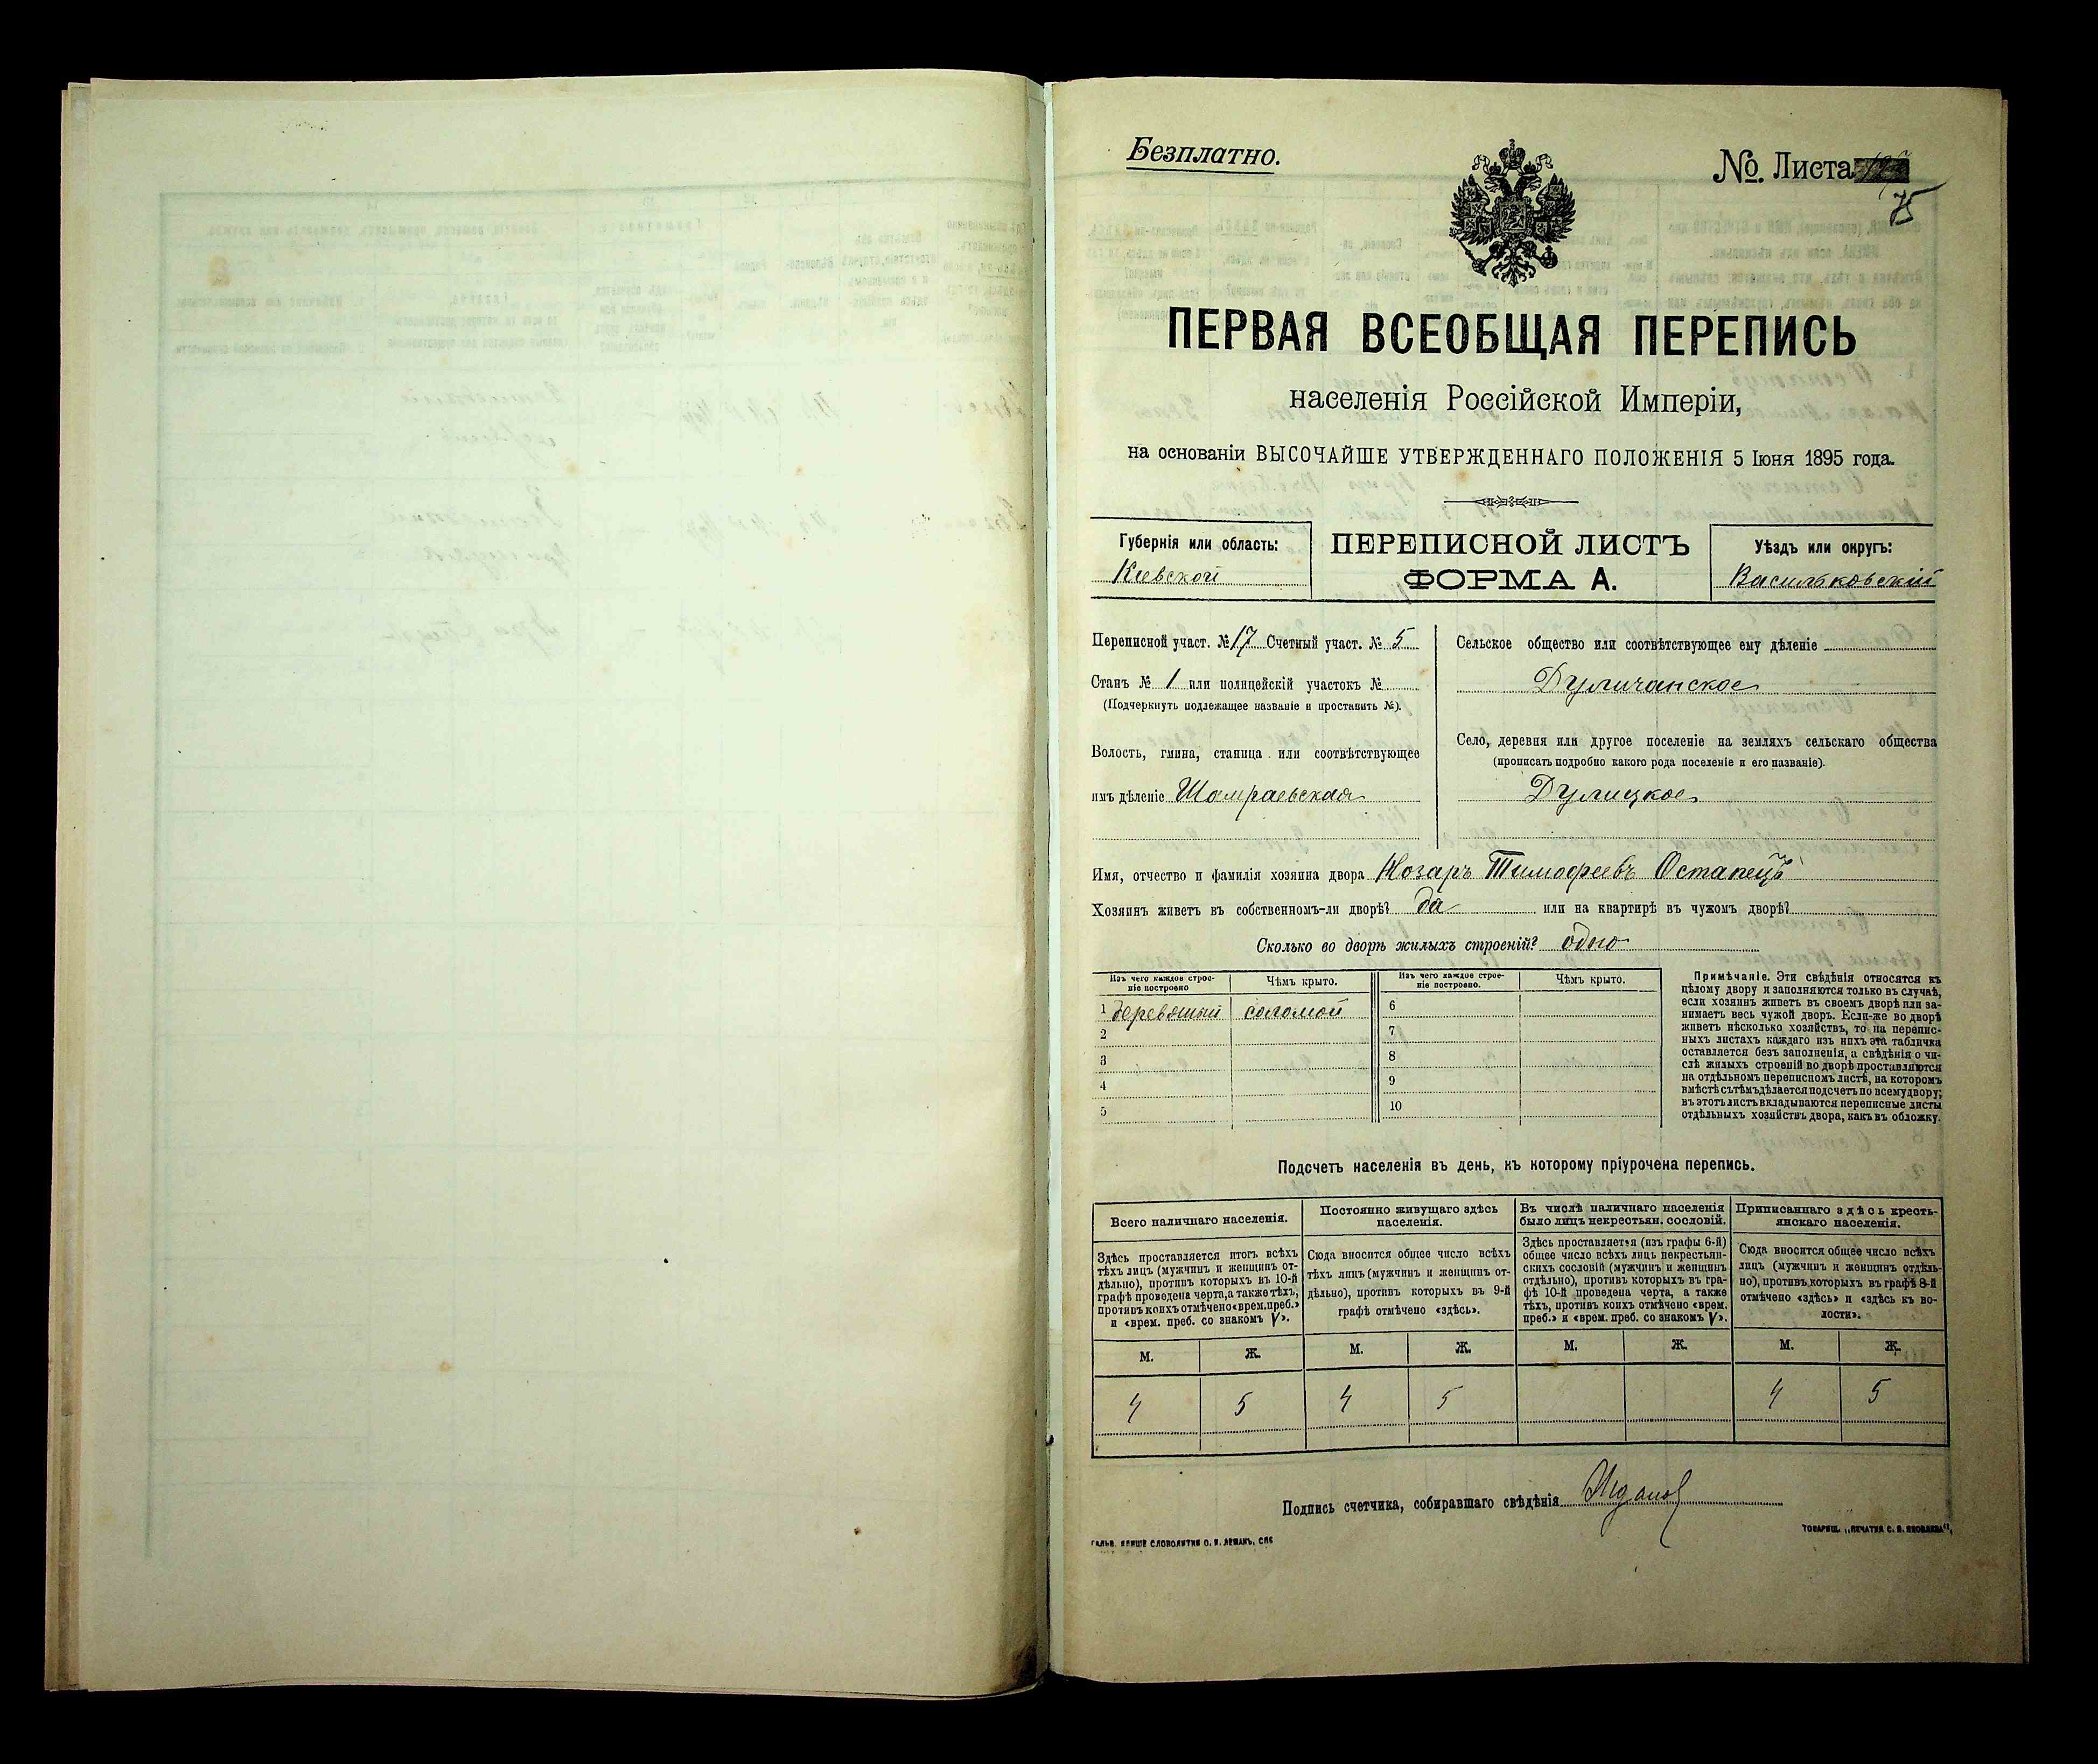 Безплатно.
№. Листа
75
ПЕРВАЯ ВСЕОБЩАЯ ПЕРЕПИСЬ
населенія Россійской Имперіи,
на основаніи ВЫСОЧАЙШЕ УТВЕРЖДЕННАГО ПОЛОЖЕНІЯ 5 Іюня 1895 года.
Губернія или область:
Кіевской
ПЕРЕПИСНОЙ ЛИСТЪ
ФОРМА А.
Уѣздъ или округъ:
Васильковскій
Переписной участ. № 17 Счетный участ. № 5
Станъ № 1 или полицейскій участокъ №
(Подчеркнуть подлежащее названіе и проставить №).
Волость, гмина, станица или соотвѣтствующее
имъ дѣленіе Шамраевская
Сельское общество или соотвѣтствующее ему дѣленіе
Дуличанское
Село, деревня или другое поселеніе на земляхъ сельскаго общества
(прописать подробно какого рода поселеніе и его названіе).
Дулицкое
Имя, отчество и фамилія хозяина двора Назаръ Тимофеевъ Остапецъ
Хозяинъ живетъ въ собственномъ-ли дворѣ? да или на квартирѣ въ чужомъ дворѣ?
Сколько во дворѣ жилыхъ строеній? одно
Изъ чего каждое строе-
ніе построено
Чѣмъ крыто.
1 деревяный соломой
2
3
4
5
Изъ чего каждое строе-
ніе построено.
Чѣмъ крыто.
6
7
8
9
10
Примѣчаніе. Эти свѣдѣнія относятся къ
цѣлому двору и заполняются только въ случаѣ,
если хозяинъ живетъ въ своемъ дворѣ или за-
нимаетъ весь чужой дворъ. Если-же во дворѣ
живетъ нѣсколько хозяйствъ, то на перепис-
ныхъ листахъ каждаго изъ нихъ эта табличка
оставляется безъ заполненія, а свѣдѣнія о чи-
слѣ жилыхъ строеній во дворѣ проставляются
на отдѣльномъ переписномъ листѣ, на которомъ
вмѣстѣ съ тѣмъ дѣлается подсчетъ по всему двору;
въ этотъ листъ вкладываются переписные листы
отдѣльныхъ хозяйствъ двора, какъ въ обложку.
Подсчетъ населенія въ день, къ которому пріурочена перепись.
Всего наличнаго населенія.
Здѣсь проставляется итогъ всѣхъ
тѣхъ лицъ (мужчинъ и женщинъ от-
дѣльно), противъ которыхъ въ 10-й
графѣ проведена черта, а также тѣхъ,
противъ коихъ отмѣчено «врем. преб.»
и «врем. преб. со знакомъ V».
М. Ж.
4 5
Постоянно живущаго здѣсь
населенія.
Сюда вносится общее число всѣхъ
тѣхъ лицъ (мужчинъ и женщинъ от-
дѣльно), противъ которыхъ въ 9-й
графѣ отмѣчено «здѣсь».
М. Ж.
4 5
Въ числѣ наличнаго населенія
было лицъ некрестьян. сословій.
Здѣсь проставляется (изъ графы 6-й)
общее число всѣхъ лицъ некрестьян-
скихъ сословій (мужчинъ и женщинъ
отдѣльно), противъ которыхъ въ гра-
фѣ 10-й проведена черта, а также
тѣхъ, противъ коихъ отмѣчено «врем.
преб.» и «врем. преб. со знакомъ V».
М. Ж.
Приписаннаго здѣсь кресть-
янскаго населенія.
Сюда вносится общее число всѣхъ
лицъ (мужчинъ и женщинъ отдѣль-
но), противъ которыхъ въ графѣ 8-й
отмѣчено «здѣсь» и «здѣсь къ во-
лости».
М. Ж.
4 5
Подпись счетчика, собиравшаго свѣдѣнія
ТОВАРИЩ. „ПЕЧАТНЯ С. П. ЯКОВЛЕВА“,
СЛОВОЛИТНИ О. И. ЛЕМАНЪ, СПБ